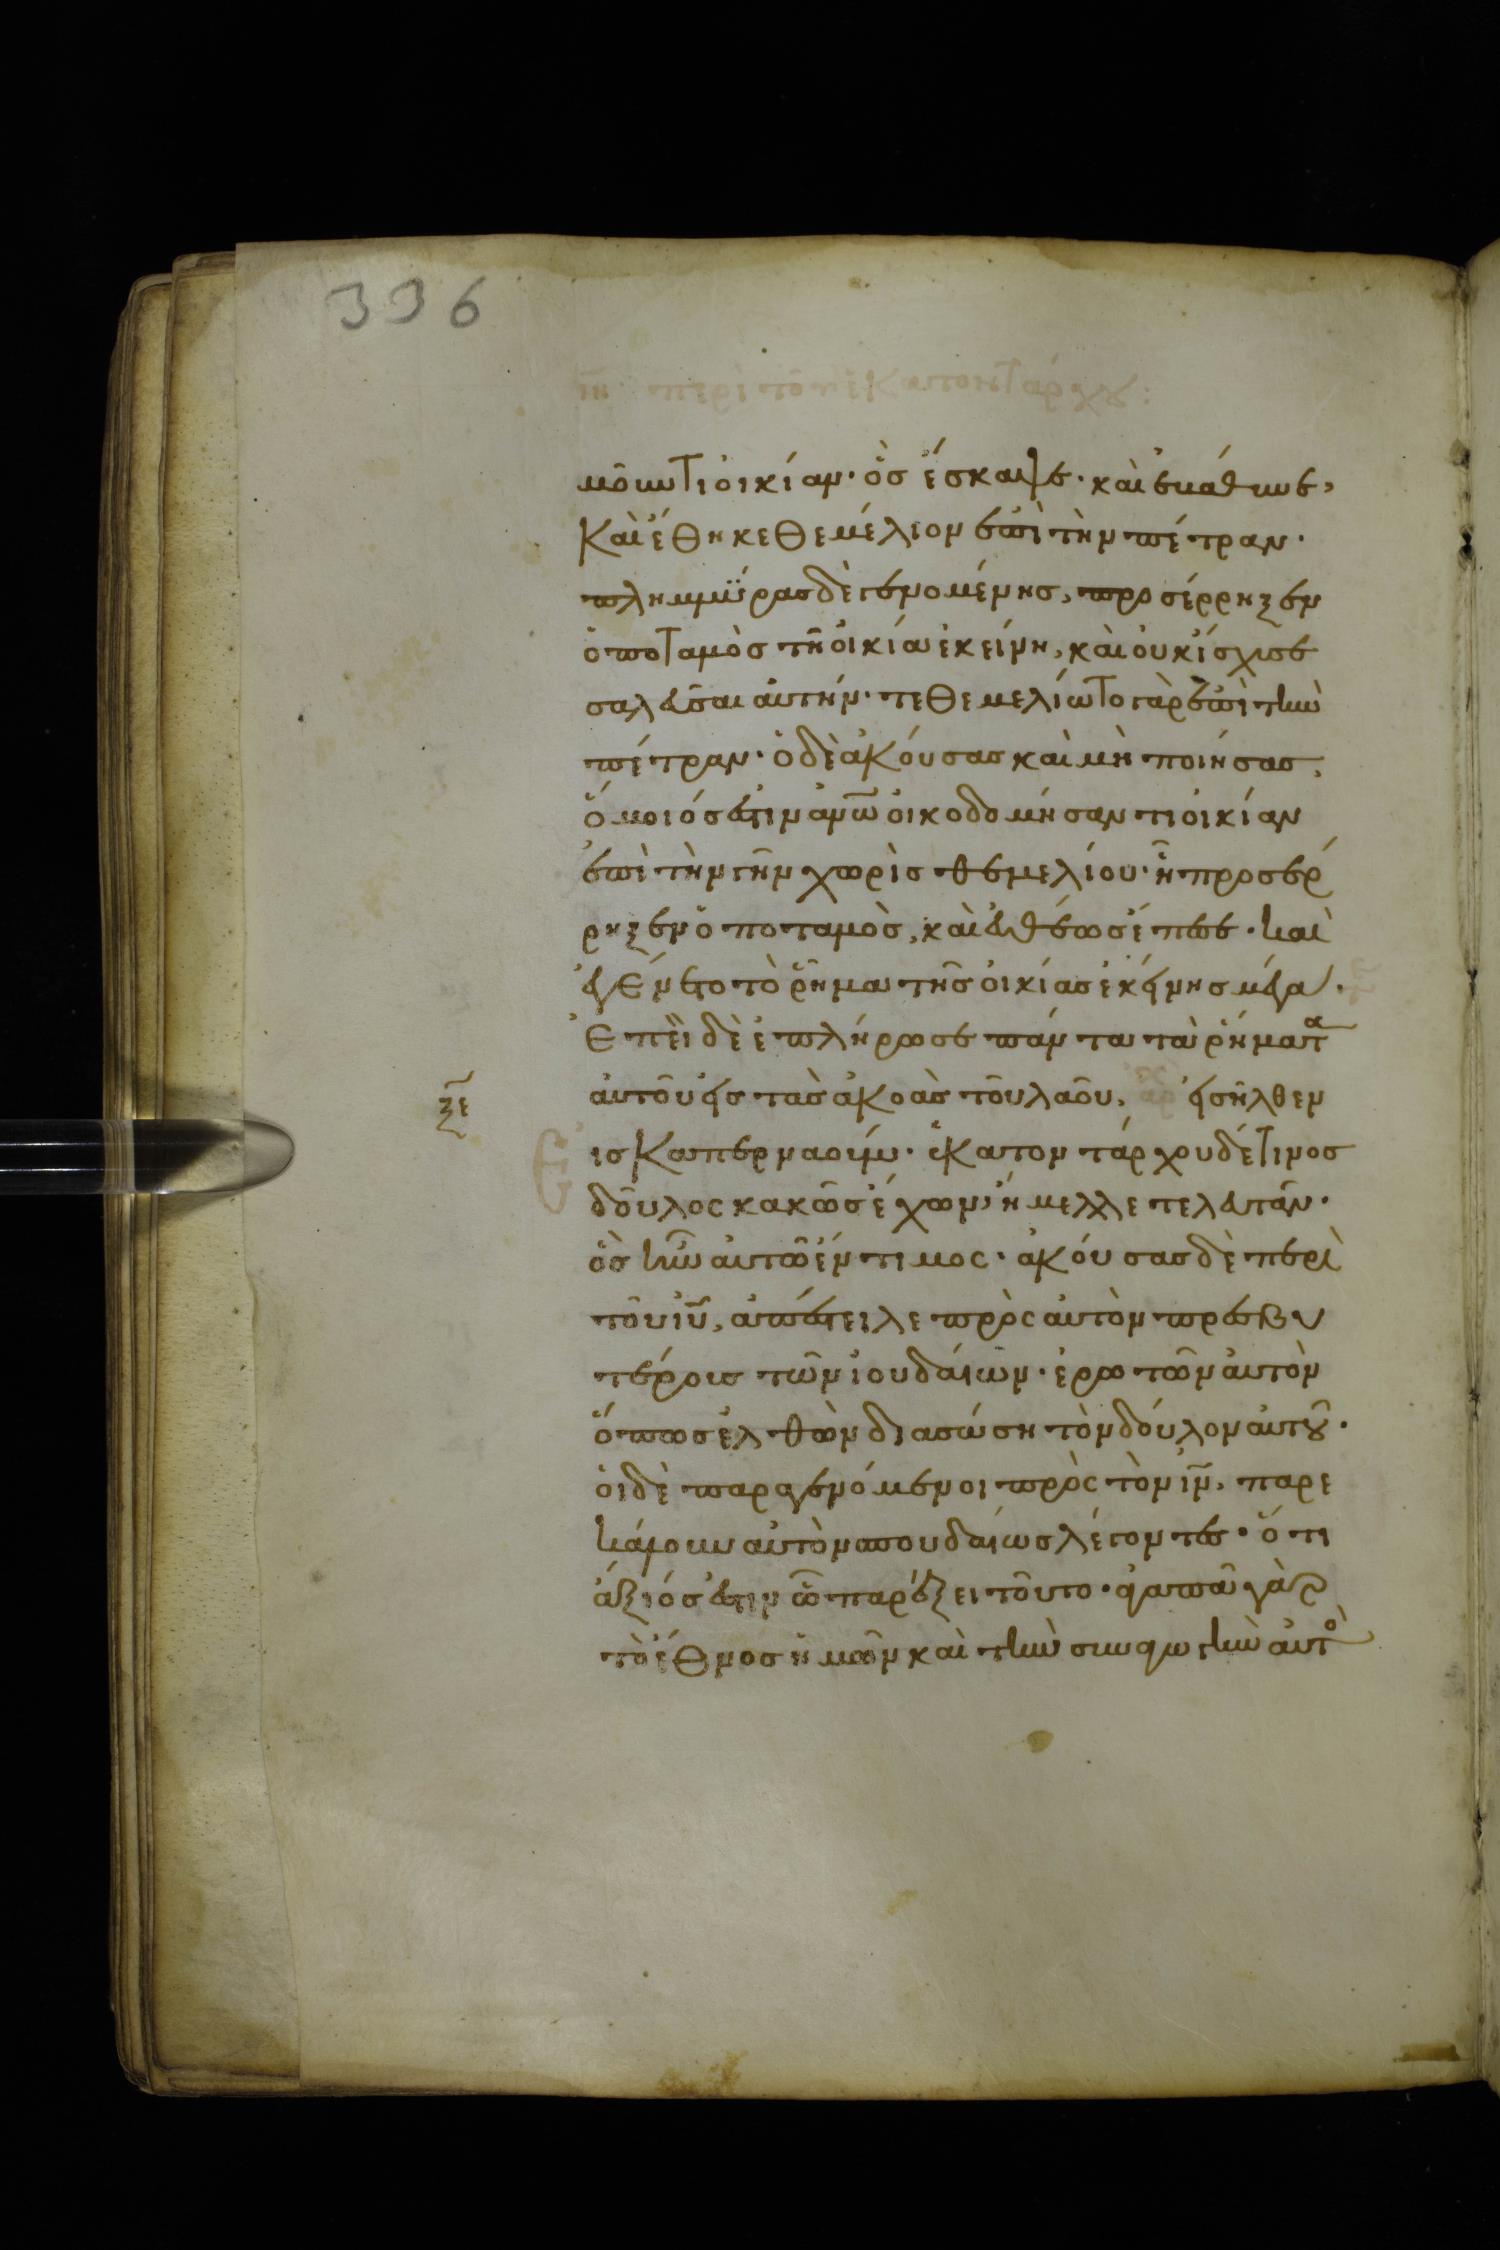 336
ιη περὶ τοῦ ἑκατοντάρχου:
μοῦντι οἰκίαν· ὃς ἔσκαψε· καὶ ἐβάθυνε,
Καὶ ἔθηκε θεμέλιον ἐπὶ τὴν πέτραν·
πλημμύρας δὲ γενομένης, προσέρρηξεν
ὁ ποταμὸς τῆ οἰκία ἐκείνη, καὶ οὐκ ἴσχυσε
σαλεῦσαι αὐτήν· τεθεμελίωτο γὰρ ἐπὶ τὴν
πέτραν· ὁ δὲ ἀκούσας καὶ μὴ ποιήσας,
ὅμοιός ἐστιν ἀνω οἰκοδομήσαντι οἰκίαν
ἐπὶ τὴν γῆν χωρὶς θεμελίου· ἧ προσέρ
ρηξεν ὁ ποταμὸς, καὶ εὐθέως ἔπεσε· καὶ
ἐγένετο τὸ ῥῆγμα τῆς οἰκίας ἐκείνης μέγα·
Ἐπεὶ δὲ ἐπλήρωσε πάντα τὰ ῥήματα
ξε αὐτοῦ εἰς τὰς ἀκοὰς τοῦ λαοῦ, αρχ εἰσῆλθεν
Εἰς Καπερναούμ· ἑκατοντάρχου δέ τινος
δοῦλος κακῶς ἔχων, ἤμελλε τελευτᾶν·
ὃς ἦν αὐτῶ ἔντιμος· ἀκούσας δὲ περὶ
τοῦ ιυ, ἀπέστειλε πρὸς αὐτὸν πρεσβυ
τέρους τῶν ἰουδαίων· ἐρωτῶν αὐτὸν
ὅπως ἐλθὼν διασώση τὸν δοῦλον αὐτοῦ·
οἱ δὲ παραγενόμενοι πρὸς τὸν ιν, παρε
κάλουν αὐτὸν σπουδαίως λέγοντες· ὅτι
ἄξιός ἐστιν ὧ παρέξει τοῦτο· ἀγαπᾶ γὰρ
τὸ ἔθνος ἡμῶν καὶ τὴν συναγωγὴν αὐτὸ